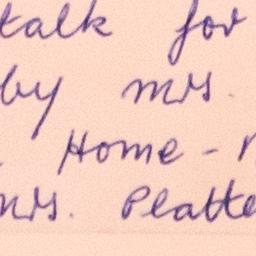 talk for
by mrs.
Home -
mrs. Platte